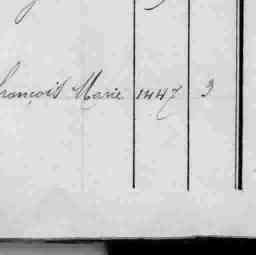 François Marie 1447 3